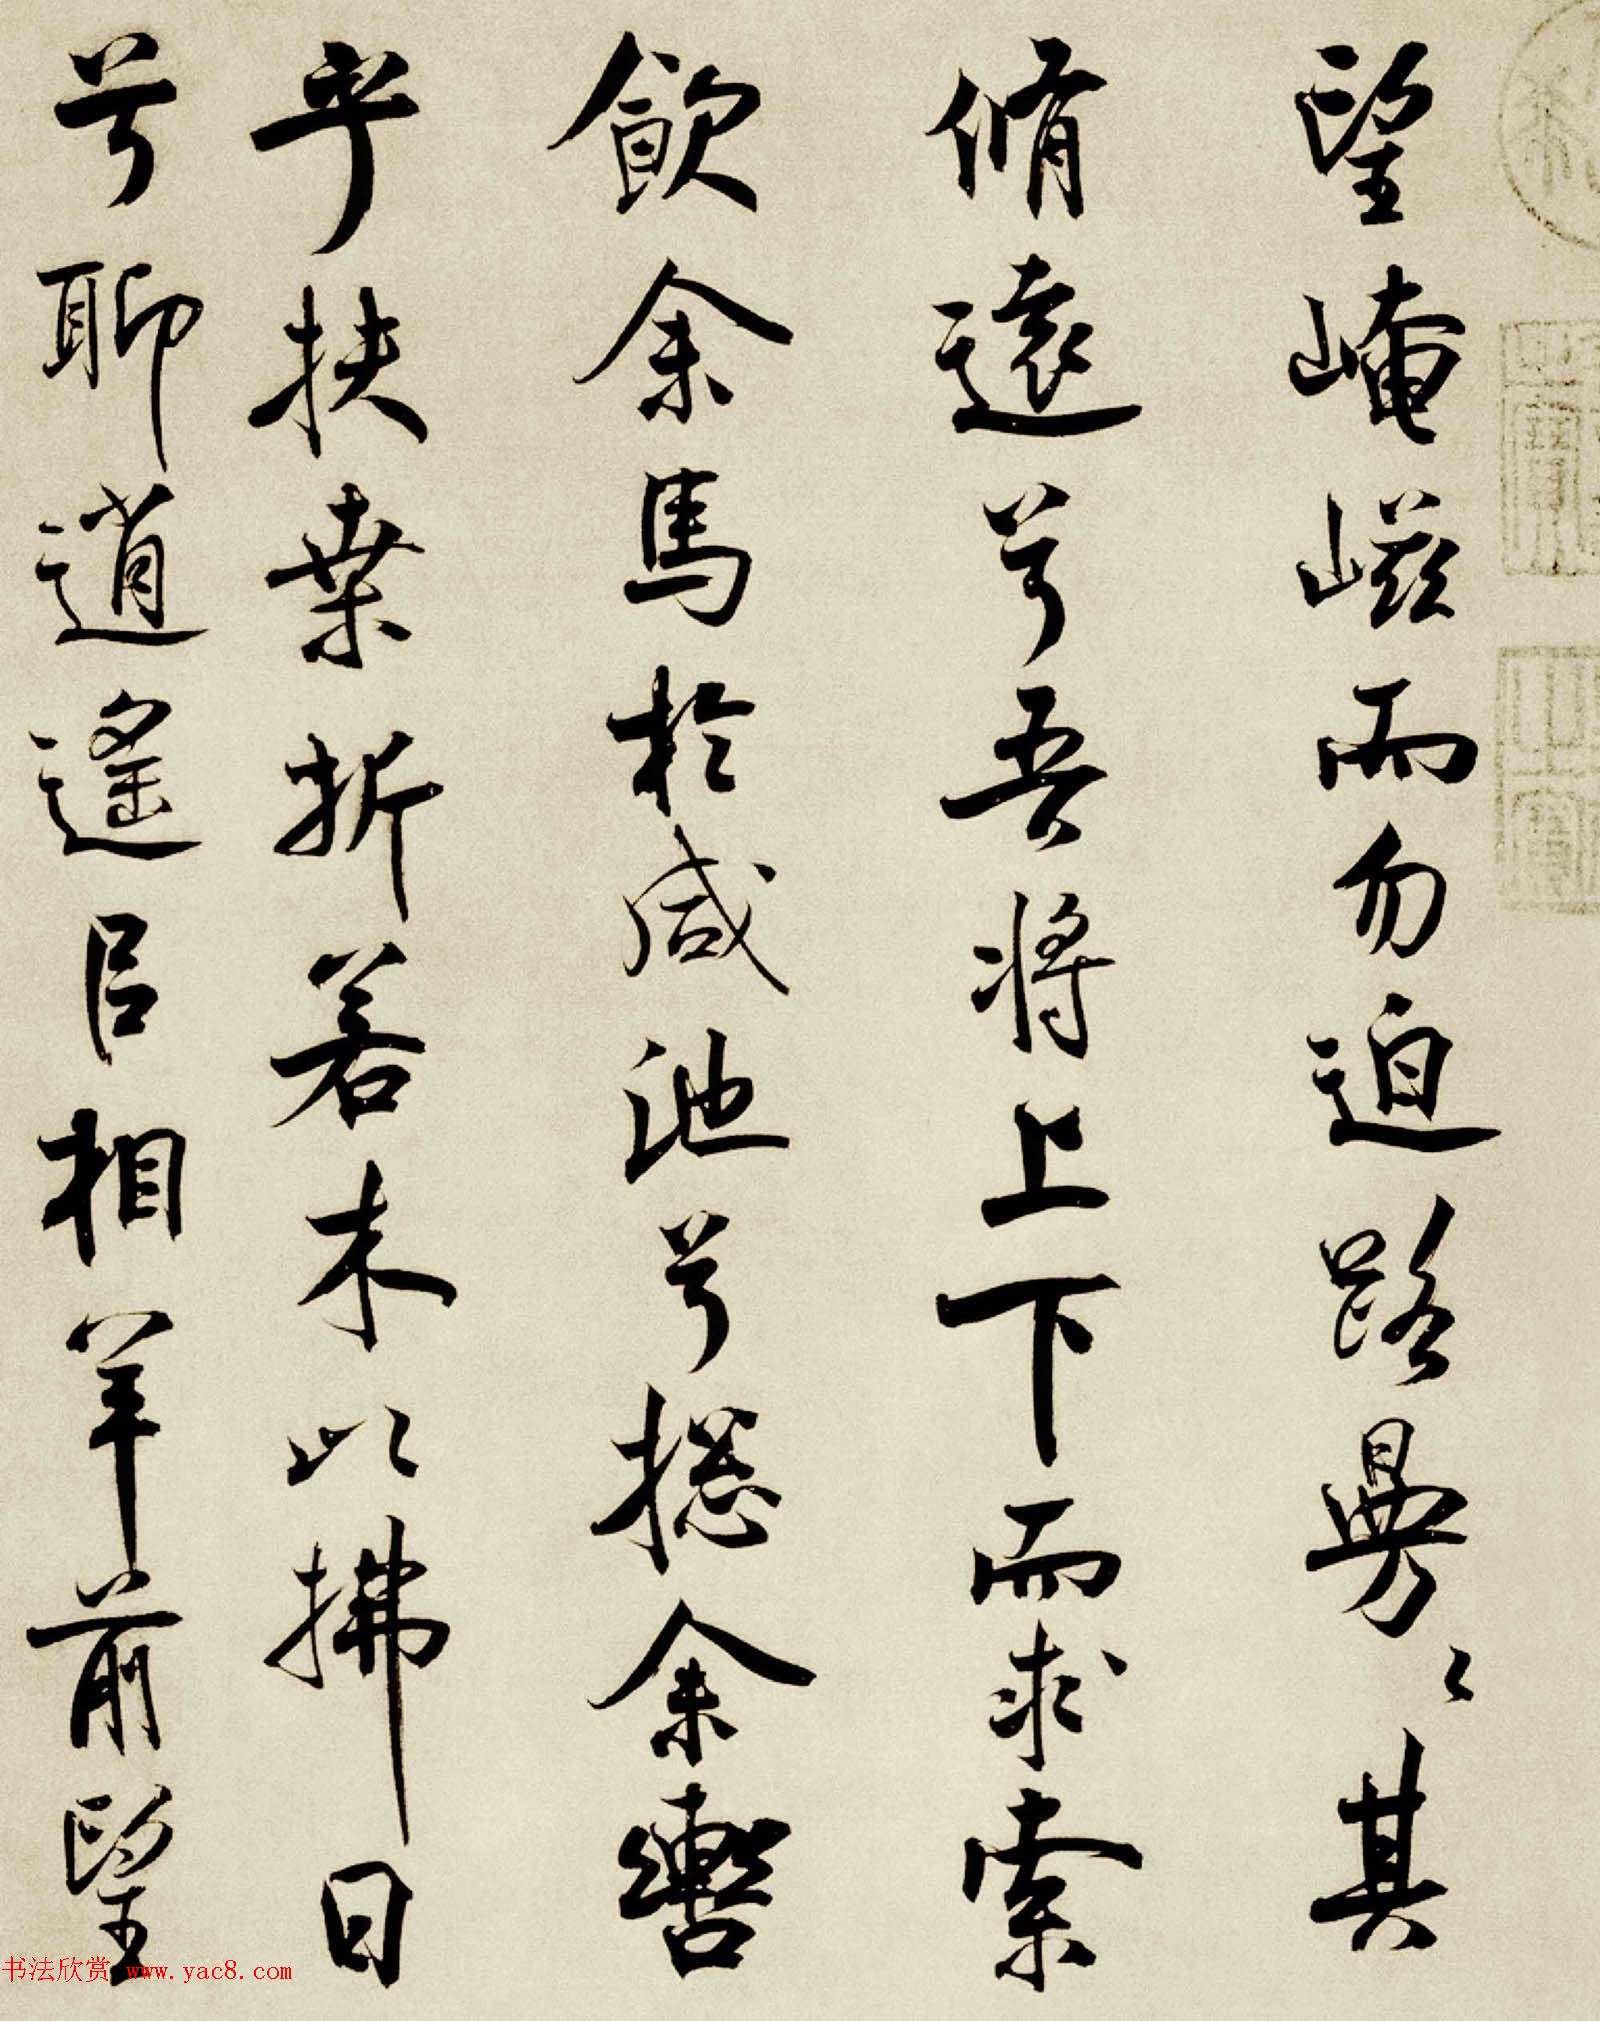 望崦嵫而勿迫路曼〻其
脩遠兮吾將上下而求索
飲余馬於咸池兮揔余轡
乎扶桒折若木以拂日
兮聊逍遙㠯相羊前望
书法欣赏 www.yac8.com